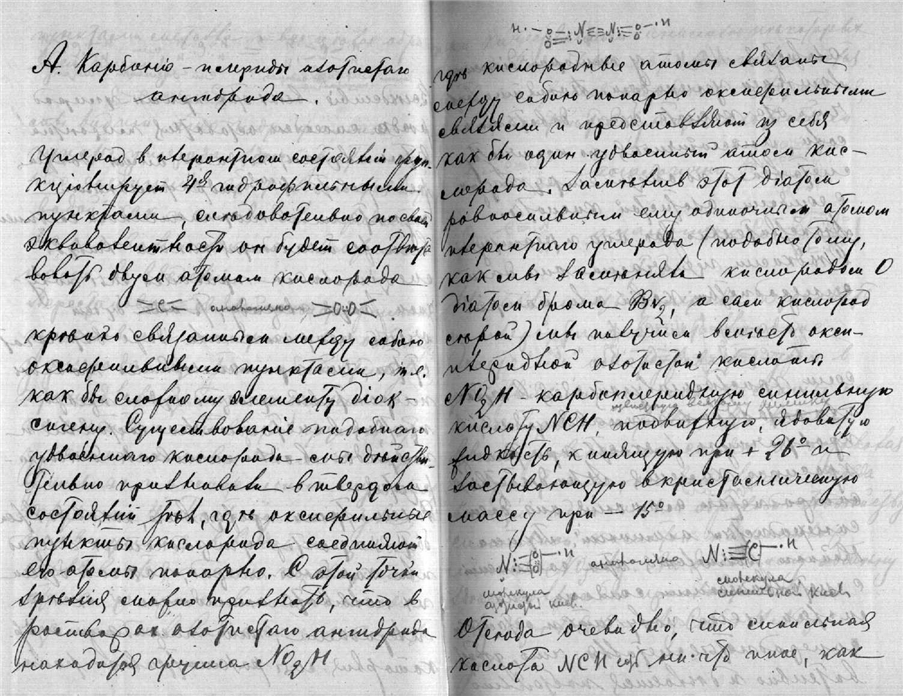 А. Карбонио-плериды азотистаго
ангидрида.
Углерад в плерантном состоянии
4мя гидрофильными
пунктами, следовательно по своей
эквивалентности он будет соответ
вовать двум атомам кислорода
>=C=< >O·O<
связанным между собою
оксерильными пунктами, т.е.
как бы сложному элементу діок-
сигену. Существование подобнаго
удвоеннаго кислорода мы действи-
тельно признавали в твердом
состоянии, где оксерильные
пункты кислорода соединяют
его атомы попарно. С этой точки
зрения можно признать, что в
растворах азотистаго ангидрида
находится группа NO2H
H·—O=N≡N=O—·H
где кислородные атомы связаны
между собою попарно оксерильными
связями и представляют из себя
как бы один удвоенный атом кис-
лорада. Заменив этот діатом
равносильным ему одиночным атомом
плерантного углерода (подобно тому,
как мы заменяли кислородом O
діатом брома Br2, а сам кислород
серой) мы получим вместо окси-
плеридной азотистой кислоты
NO2H - карбоплеридную синильную
кислоту NCH, подвижную, ядовитую
жидкость, кипящую при + 26° и
застывающую в кристаллическую
массу при — 15°
N O O —·H аналогична N≡C—·H
молекула молекула
азотист. кисл. синильной кисл.
Отсюда очевидно, что синильная
кислота NCH есть ни что иное, как